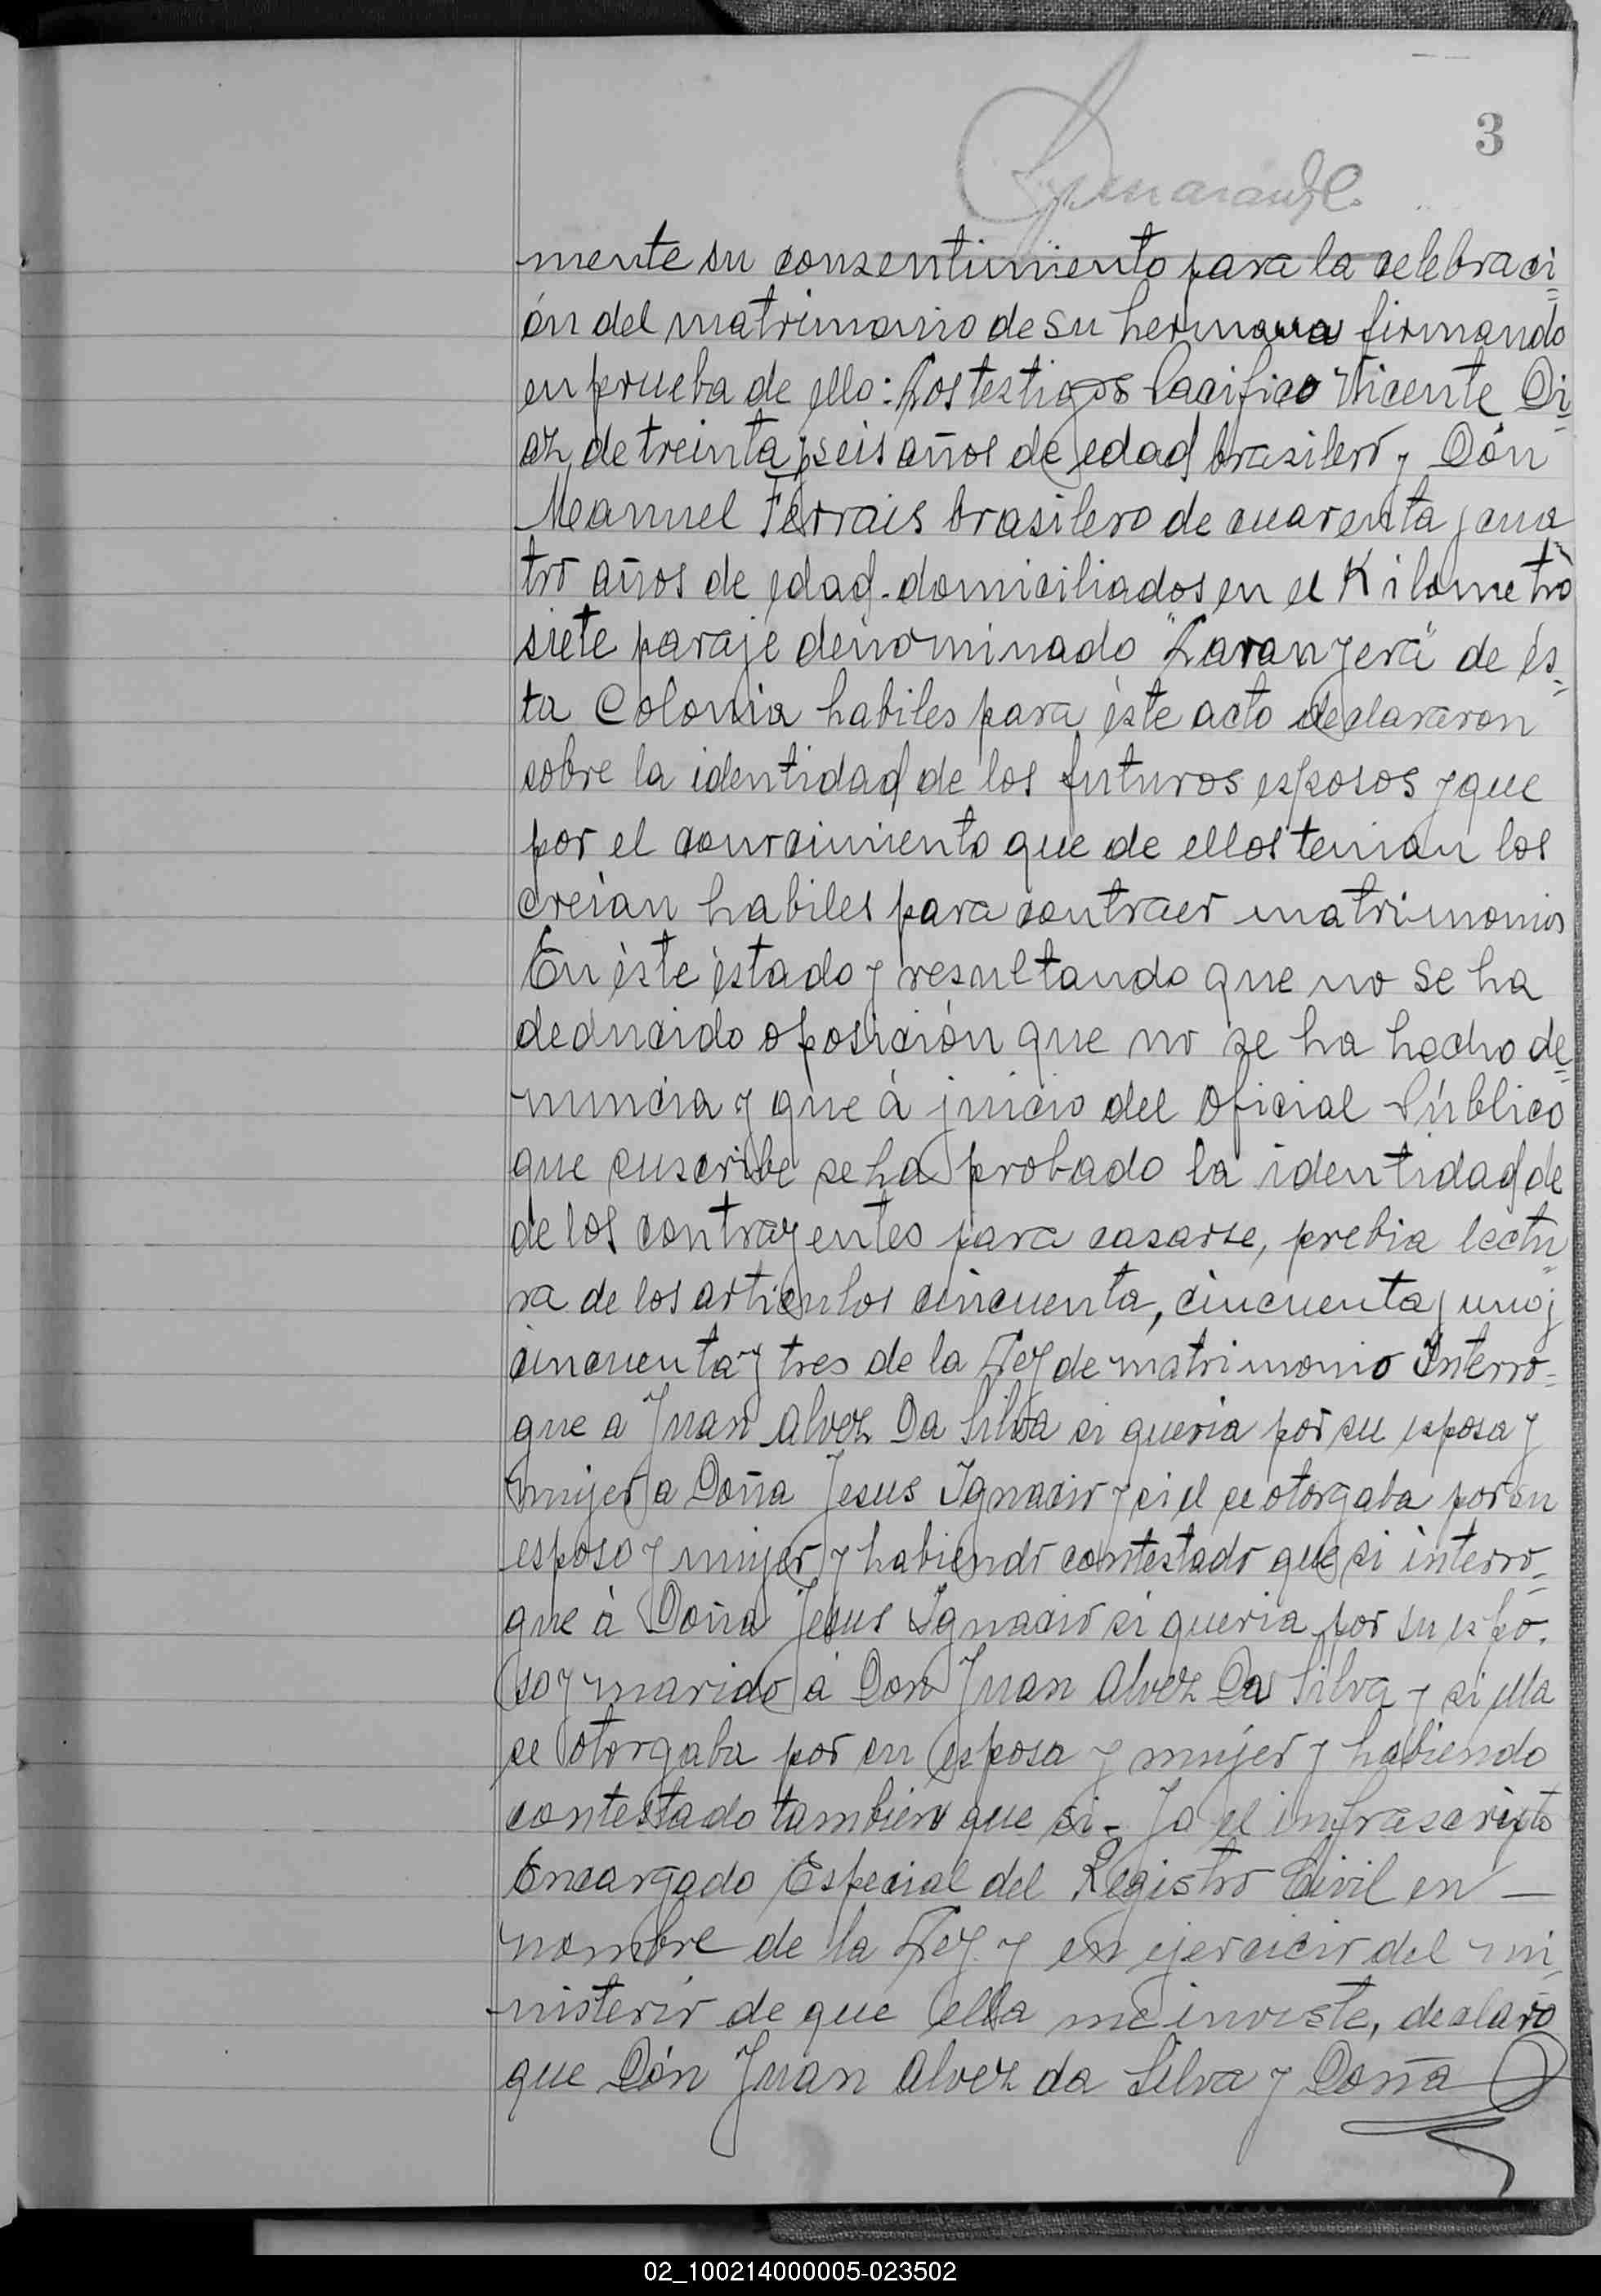 3
mente su consentimiento para la celebraci=
ón del matrimonio de su hermana firmando
en prueba de ello: Los testigos Pacifico Vicente Di=
az, de treinta y seis años de edad brasilero y Dón
Meanuel Ferrais brasilero de cuarenta y cua
tro años de edad. domiciliados en el Kilometro
siete paraje denominado "Laranyera" de és=
ta Colonia habiles para èste acto declararon
sobre la identidad de los futuros esposos y que
por el conocimiento que de ellos tenian los
creian habiles para contraer matrimonio
En èste èstado y resultando que no se ha
deducido oposición que no se ha hecho de=
nuncia y que à juicio del Oficial Público
que suscribe se ha probado la identidad de
de los contrayentes para casarse, prebia lectu=
ra de los articulos cincuenta, cincuenta y uno y
cincuenta y tres de la Ley de matrimonio Interro=
gue a Juan Alvez Da Silva si queria por su esposa y
mujer a Doña Jesus Ignacio y si el se otorgaba por su
esposo y mujer y habiendo contestado que si interro=
gue à Doña Jesus Ignacio si queria por su espo.
so y marido à Don Juan Alvez Da Silva y si ella
se otorgaba por su esposa y mujer y habiendo
contestado tambien que si - Yo el infrascripto
Encargado Especial del Registro Civil en —
nombre de la Ley y en ejercicio del mi
nisterio de que ella me inviste, declaro
que Dón Juan Alvez da Silva y Doña
02_100214000005-023502